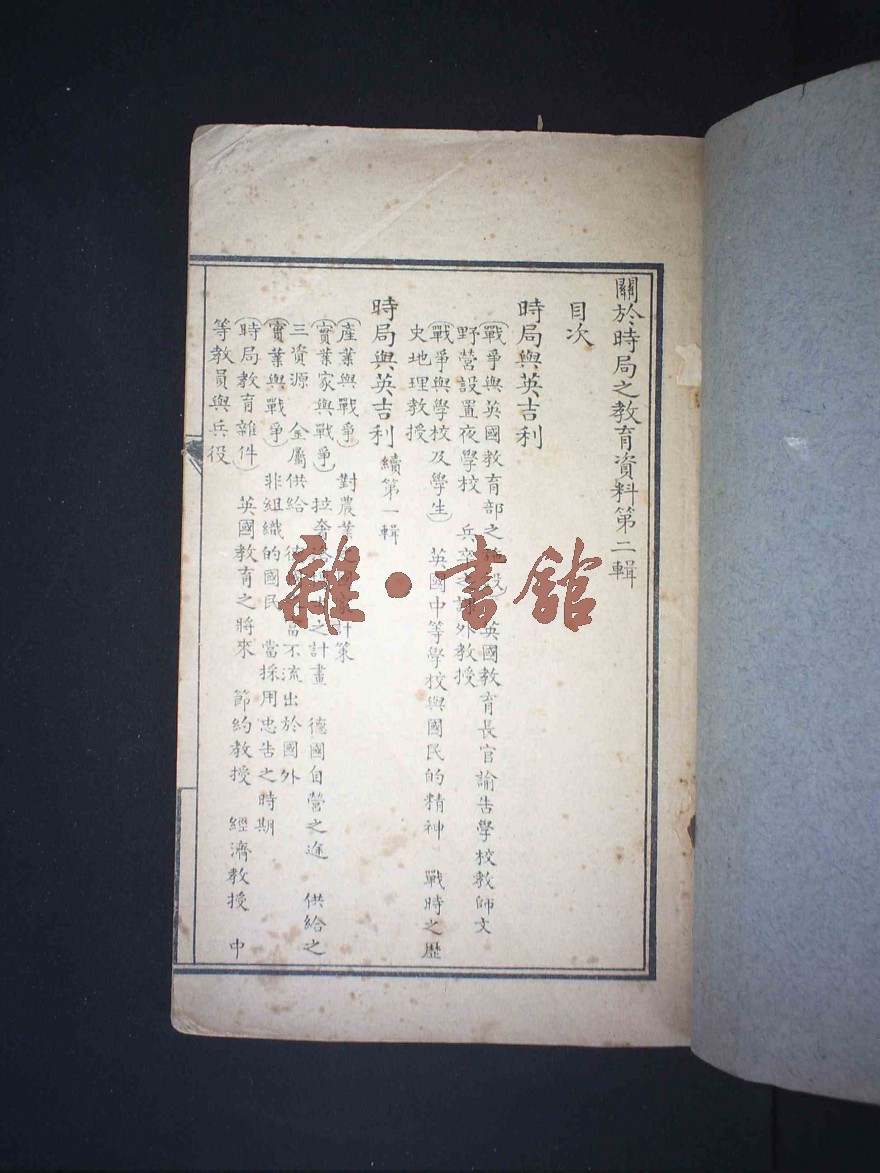 關於時局之教育資料第二輯
目次
時局與英吉利
(戰爭與英國教育部之 設) 英國教育長官諭告學校教師文
野營設置夜學校 兵 之 外教授
(戰爭與學校及學生) 英國中等學校與國民的精神 戰時之歷
史地理教授
時局與英吉利 續第一輯
(產業與戰爭) 對農業 計策
(實業家與戰爭) 拉 之計畫 德國自營之途 供給之
三資源 金屬供給 德 富不流出於國外
(實業與戰爭) 非組織的國民 當採用忠告之時期
(時局教育雜件) 英國教育之將來 節約教授 經濟教授 中
等教員與兵役
雜·書館